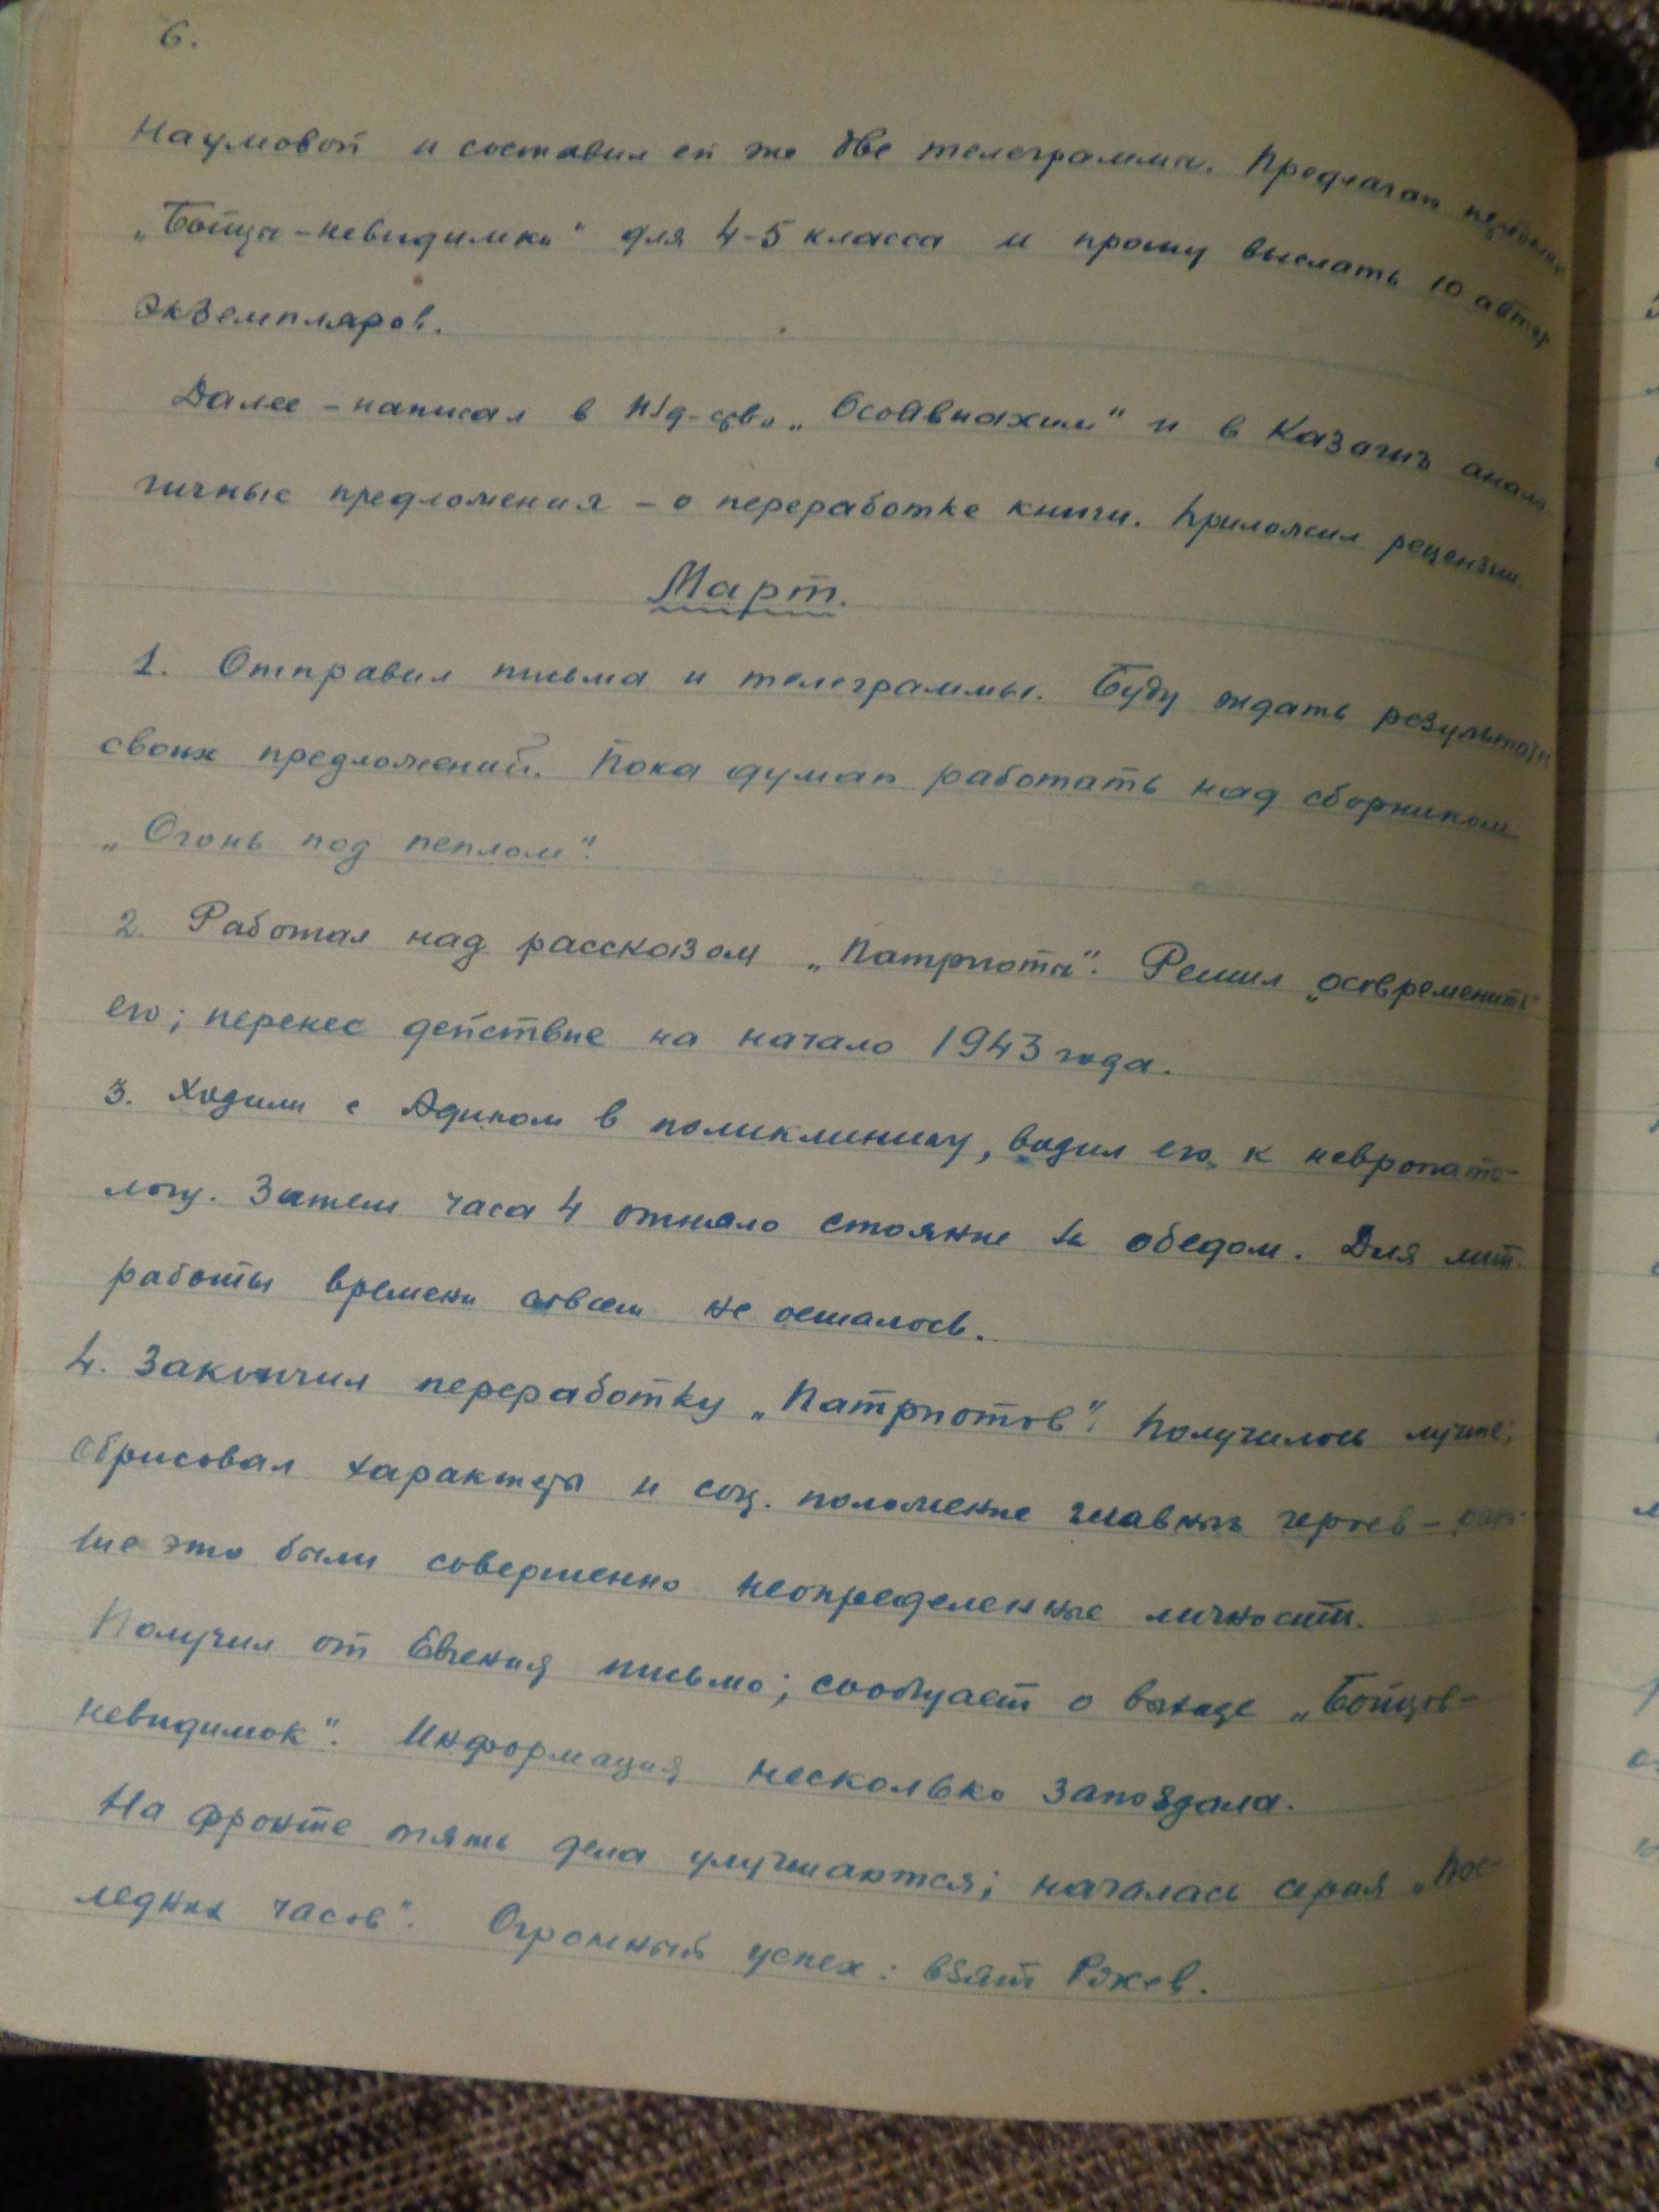 6.
Наумовой и составил ей же две телеграммы. Предлагаю
„Бойца-невидимки" для 4-5 класса и прошу выслать 10 автор
экземпляров.
Далее - написал в Изд-ство „Осоавиахим" и в Казогиз анало
гичные предложения - о переработке книги. Приложил рецензии.
Март.
1. Отправил письма и телеграммы. Буду ждать результаты
своих предложений. Пока думаю работать над сборником
„Огонь под пеплом".
2. Работал над рассказом „Патриоты". Решил „осовременить"
его; перенес действие на начало 1943 года.
3. Ходили с Адиком в поликлинику, водил его к невропато-
логу. Затем часа 4 отняло стояние за обедом. Для лит.
работы времени совсем не осталось.
4. Закончил переработку „Патриотов". Получилось лучше;
обрисовал характеры и соц. положение главных героев - рань
ше это были совершенно неопределенные личности.
Получил от Евгения письмо; сообщает о выходе „Бойцов-
невидимок". Информация несколько запоздала.
На фронте опять дела улучшаются; началась серия „Пос-
ледних часов". Огромный успех: взят Ржев.